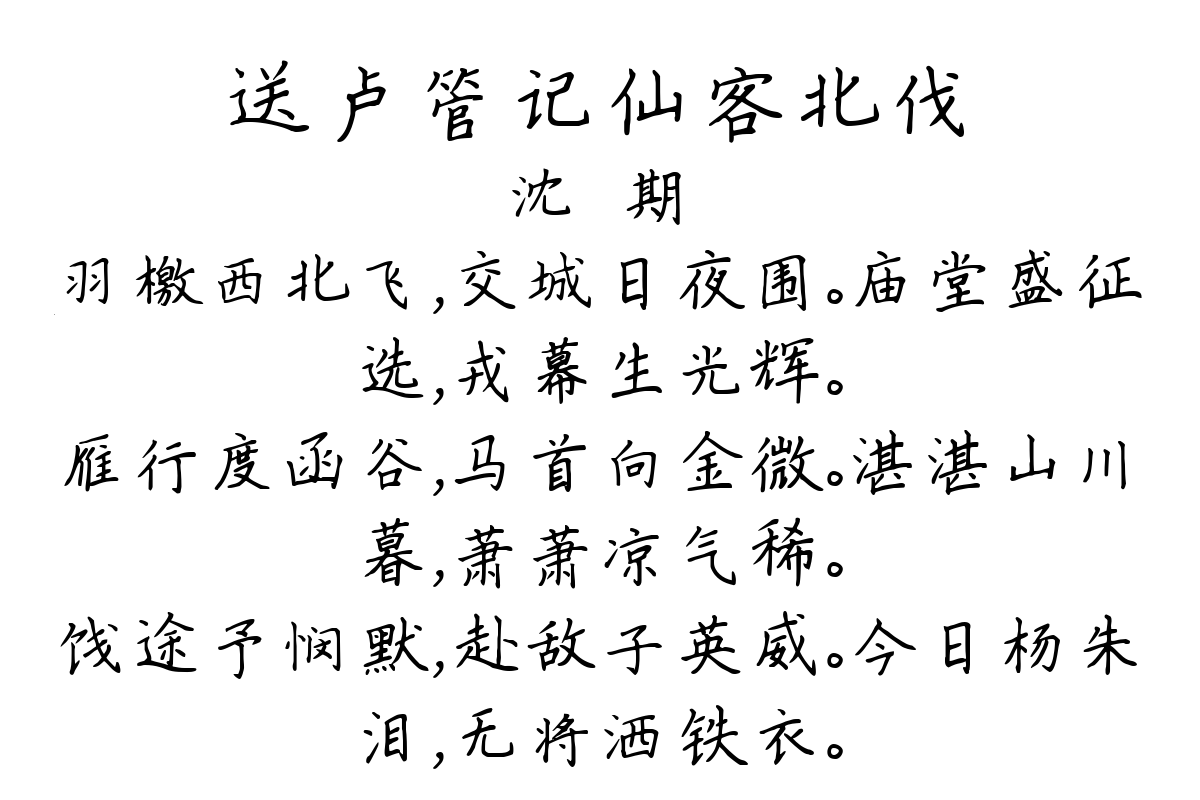 送卢管记仙客北伐
沈 期
羽檄西北飞,交城日夜围。庙堂盛征
选,戎幕生光辉。
雁行度函谷,马首向金微。湛湛山川
暮,萧萧凉气稀。
饯途予悯默,赴敌子英威。今日杨朱
泪,无将洒铁衣。